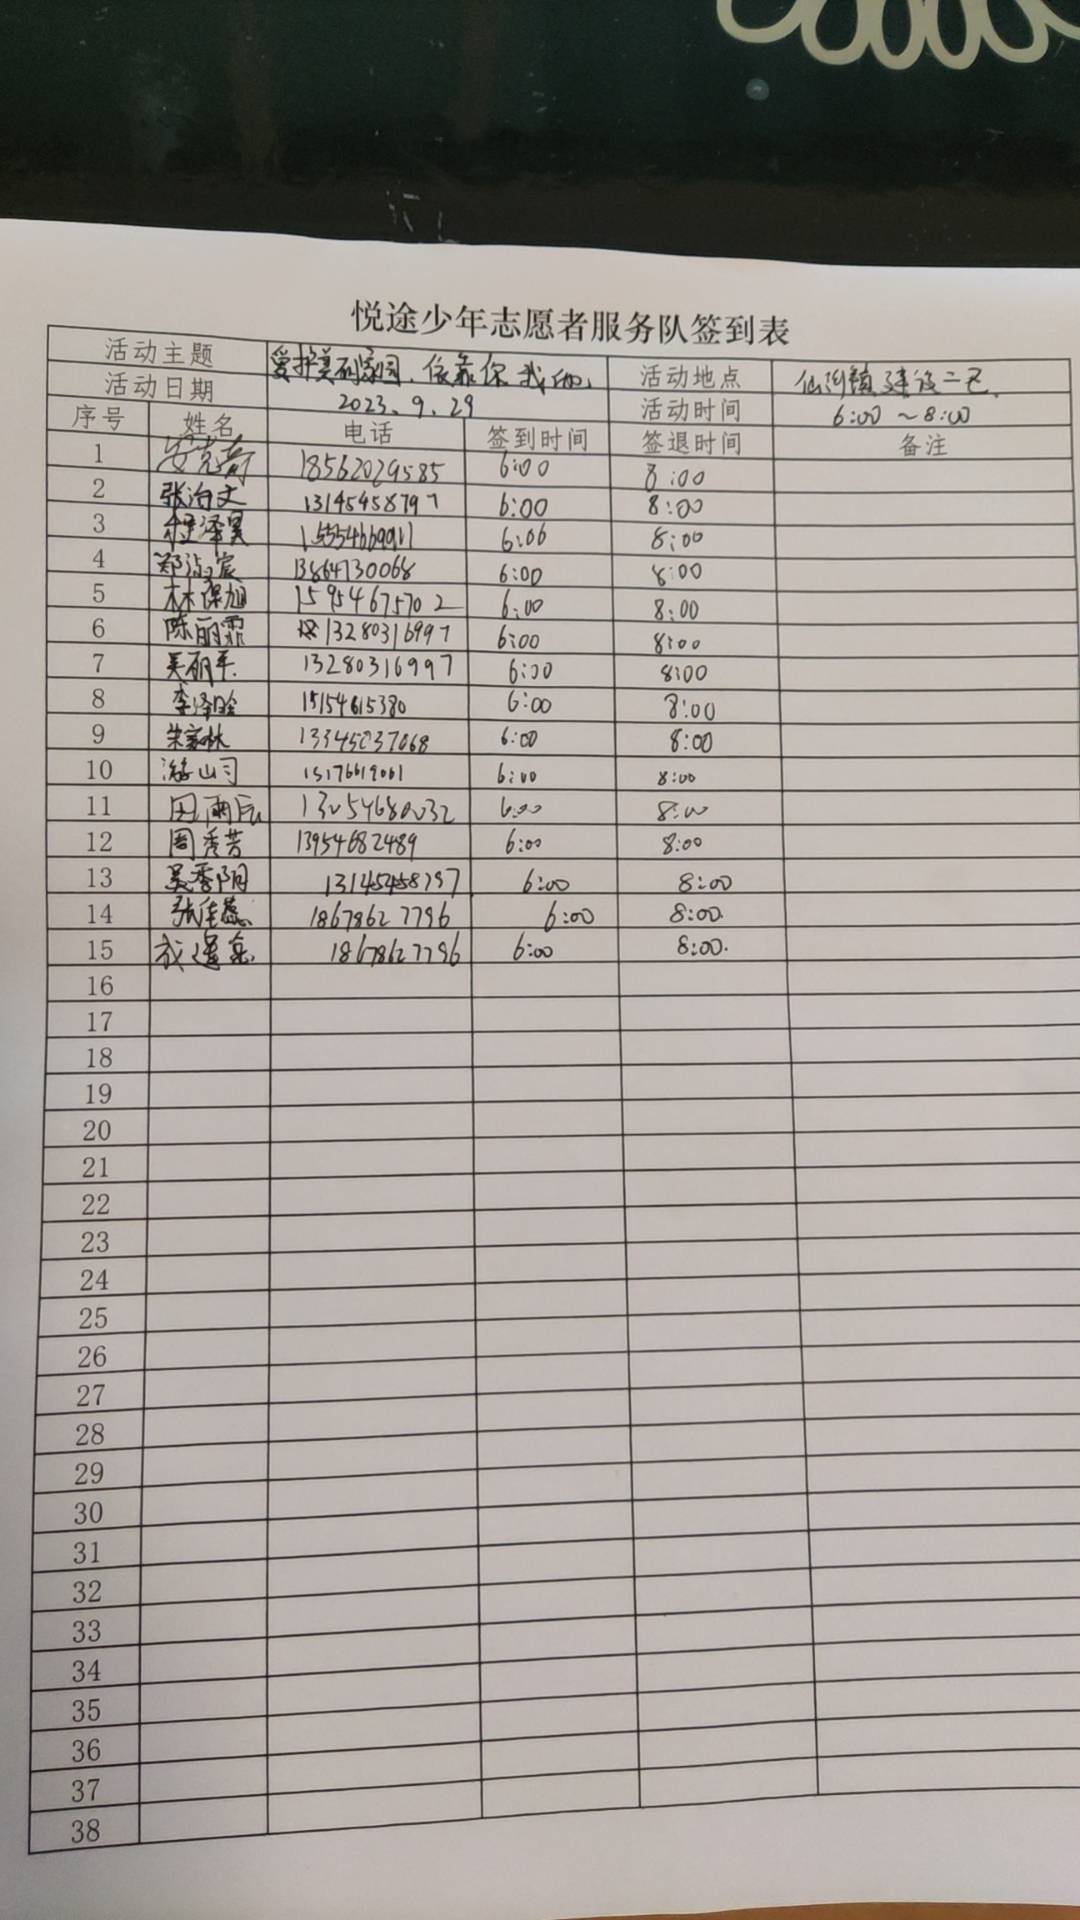 悦途少年志愿者服务队签到表
活动主题 爱护美丽家园、依靠你我他、 活动地点 仙河镇建设二区
活动日期 2023、9、29 活动时间 6:00～8:00
序号 姓名 电话 签到时间 签退时间 备注
1 18562029585 6:00 8:00
2 张治文 13145458797 6:00 8:00
3 程泽昊 6:00 8:00
4 13864730068 6:00 8:00
5 林保旭 15954675702 6:00 8:00
6 陈丽霏 13280316997 6:00 8:00
7 吴丽平 13280316997 6:00 8:00
8 李泽晗 15154615380 6:00 8:00
9 朱家林 13345037068 6:00 8:00
10 游山习 15176619061 6:00 8:00
11 田雨辰 13054680032 6:00 8:00
12 周秀芳 13954682489 6:00 8:00
13 吴季阳 13145458797 6:00 8:00
14 张佳蕊 18678627796 6:00 8:00
15 18678627796 6:00 8:00
16
17
18
19
20
21
22
23
24
25
26
27
28
29
30
31
32
33
34
35
36
37
38